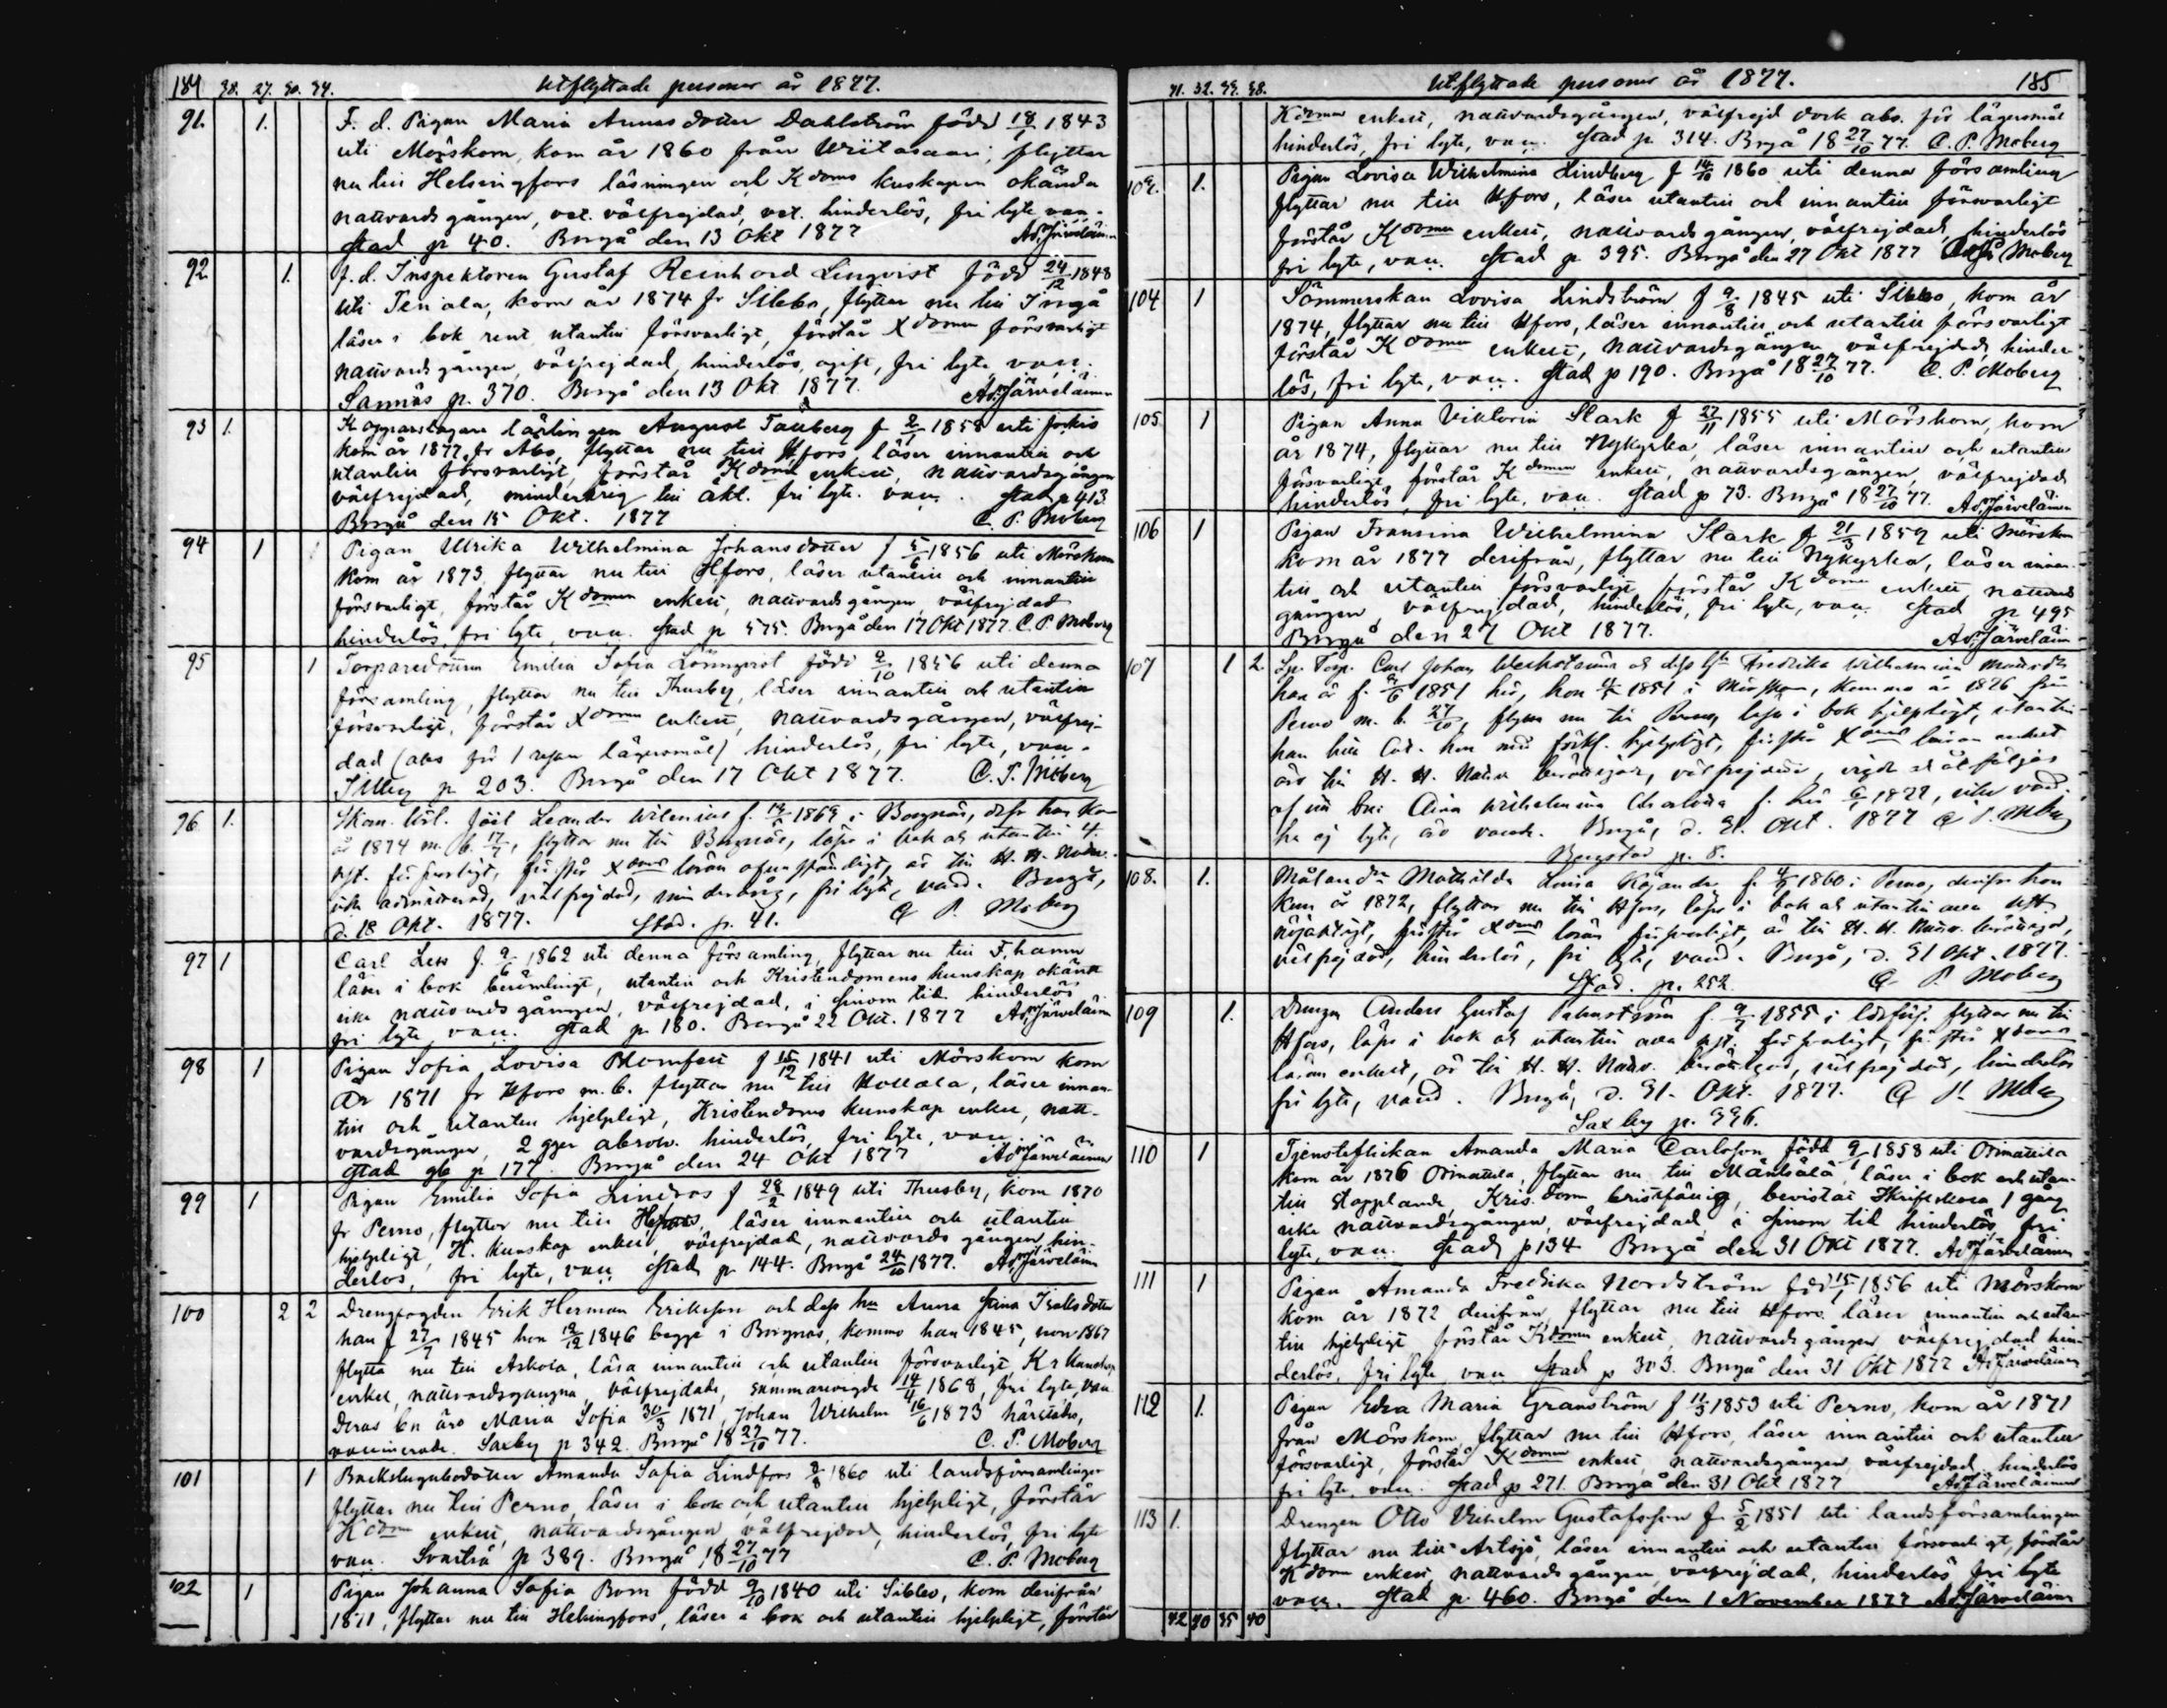 184 38. 27. 30. 34. Utflyttade personer år 1877.
91. 1. F. d. Pigan Maria Annasdotter Dahlström född 18/1 1843
uti Mörskom, kom år 1860 från Wiitasaari, flyttar
nu till Helsingfors läsningen och Kdoms kuskapen okända
nattvardsgången, vet. välfrejdad, vet. hinderlös, fri lyte vac.
Stad p 40. Borgå den 13 Okt 1877 Ad. Järveläinen
92 1. f. d. Inspektoren Gustaf Reinhord Linqvist född 24/12 1848
uti Tenala, kom år 1874 fr Sibbo, flyttar nu till Ingå
läser i bok rent utantill försvarligt, förstår Xdomen försvarligt
nattvardsgången, välfrejdad, hinderlös, ogift, fri lyte, vacc.
Sannäs p. 370. Borgå den 13 Okt 1877. Ad. Järveläinen
93 1. Kopparslagare lärlingen August Tauberg f 2/1 1858 uti Jockis
kom år 1877 fr Åbo, flyttar nu till Hfors, läser innantill och
utantill försvarligt, förstår Kdomen enkelt, nattvardsgången
välfrejdad, minderårig till äkt. fri lyte. vacc. Stad p 413
Borgå den 15 Okt. 1877 C. P. Moberg
94 1 Pigan Ulrika Wilhelmina Johansdotter f 5/6 1856 uti Mörskom
kom år 1873, flyttar nu till Hfors, läser utantill och innantill
försvarligt, förstår Kdomen enkelt, nattvardsgången, välfrejdad
hinderlös, fri lyte, vacc. Stad p 575. Borgå den 17 Okt 1877. C. P. Moberg
95 1 Torparedottren Emilia Sofia Lönnqvist född 9/10 1856 uti denna
församling, flyttar nu till Thusby, läser innantill och utantill
försvarligt, förstår Xdomen enkelt, nattvardsgången, välfrej-
dad (abs för 1 resan lägersmål) hinderlös, fri lyte, vac.
p 203. Borgå den 17 Okt 1877. C. P. Moberg
96 1. Leander Wilenius f. 1869 i Borgnäs, kom
år 1874 m. b. 17/7, flyttar nu till Borgnäs, läser i bok och utantill
försvarligt, förstår Xdoms läran
välfrejdad, minderårig, fri lyte, vacc. Borgå,
d. 18 Okt. 1877. Stad. p. 41. C P. Moberg
97 1 Carl f. 9/6 1862 uti denna församling, flyttar nu till F. hamn
läser i bok berömligt, utantill och Kristendomens kunskap okänt
icke nattvardsgången, välfrejdad, i sinom tid hinderlös
fri lyte, vacc. Stad p. 180. Borgå 22 Okt. 1877 Ad. Järveläinen
98 1 Pigan Sofia Lovisa f 15/12 1841 uti Mörskom kom
år 1871 fr Hfors m. b. flyttar nu till Hollola, läser innan-
till och utantill hjelpligt, Kristendoms kunskap enkel, natt-
vardsgången, 2 gger absolv. hinderlös, fri lyte, vacc.
Stad p 177. Borgå den 24 Okt 1877 Ad. Järveläinen
99 1 Pigan Emilia Sofia Lindros f 28/2 1849 uti Thusby, kom 1870
fr Perno, flyttar nu till Hfors, läser innantill och utantill
hjelpligt, K. kunskap enkel, välfrejdad, nattvardsgången, hin-
derlös, fri lyte, vacc Stad p 144. Borgå 24/10 1877. Ad. Järveläinen
100 2 2 Drengfogden Erik Herman Eriksson och dess hu Anna Isaksdotter
han f 27/7 1845 hon 12/12 1846 begge i Borgnäs, kommo han 1845, hon 1867
flytta nu till Askola, läsa innantill och utantill försvarligt, Kr kunskap
enkel, nattvardsgångna, välfrejdade, sammanvigde 14/11 1868, fri lyte, vac
Deras bn äro Maria Sofia 30/3 1871, Johan Wilhelm 16/6 1873
vaccinerade. Saxby p 342. Borgå 18 27/10 77. C. P. Moberg
101 1 Backstugubodotter Amanda Sofia Lindfors 1860 uti landsförsamlingen
flyttar nu till Perno, läser i bok och utantill hjelpligt, förstår
Kdom enkelt, nattvardsgången, välfrejdad, hinderlös, fri lyte
vacc. Svartså p 389. Borgå 18 27/10 77 C. P. Moberg
102 1 Pigan Johanna Sofia Bom född 9/10 1840 uti Sibbo, kom derifrån
1871, flyttar nu till Helsingfors, läser i bok och utantill hjelpligt, förstår
41. 32. 34. 38. Utflyttade personer år 1877. 185
Kdomen enkelt, nattvardsgången, välfrejd dock abs. för lägersmål
hinderlös, fri lyte, vacc. Stad p. 314. Borgå 18 27/10 77. C. P. Moberg
103. 1. Pigan Lovisa Wilhelmina Lindberg f 14/10 1860 uti denna församling
flyttar nu till Hfors, läser utantill och innantill försvarligt
förstår Kdomen enkelt, nattvardsgången, välfrejdad, hinderlös
fri lyte, vacc. Stad p 395. Borgå den 27 Okt 1877 Moberg
104 1 Sömmerskan Lovisa Lindström f 9/8 1845 uti Sibbo, kom år
1874, flyttar nu till Hfors, läser innantill och utantill försvarligt
förstår Kdomen enkelt, nattvardsgången, välfrejdad, hinder-
lös, fri lyte, vacc. Stad p 190. Borgå 18 27/10 77. C. P. Moberg
105 1 Pigan Anna Viktoria Stark f 27/11 1855 uti Mörskom, kom
år 1874, flyttar nu till Nykyrka, läser innantill och utantill
försvarligt, förstår Kdomen enkelt, nattvardsgången, välfrejdad
hinderlös, fri lyte, vacc. Stad p 73. Borgå 18 27/10 77. Ad. Järveläinen
106 1 Pigan Fransina Wilhelmina Stark f 21/3 1859 uti Mörskom
kom år 1877 derifrån, flyttar nu till Nykyrka, läser innan-
till och utantill försvarligt, förstår Kdomen enkelt nattvards
gången, välfrejdad, hinderlös, fri lyte, vacc. Stad p 495
Borgå den 27 Okt 1877. Ad. Järveläinen
107 1 2 Carl Johan och dess Fredrika Wilhelmina
han är f. 1851 här, hon 1851 i Mörskom, kommo år 1876 från
Perno m. b. 27/10, flytta nu till Perno, läsa i bok hjelpligt, utantill
hjelpligt, förstå Xdoms läran enkelt
äro till H. H. Nattv. berättigade,
af Aina Wilhelmina f. 1877,
ha ej lyte, äro vaccin. Borgå, d. 31. Okt. 1877 C P. Mbg
p. 8.
108. 1. Mathilda Lovisa f. 1860 i Perno, derifrån hon
kom år 1872, flyttar nu till Hfors, läser i bok och utantill
nöjaktigt, förstår Xdoms läran försvarligt, är till H. H. Nattv. berättigad,
välfrejdad, hinderlös, fri lyte, vacc. Borgå, d. 31 Okt. 1877.
Stad. p. 252. C P. Moberg
109 1. Drengen Anders Gustaf f. 9/7 1855 i flyttar nu till
Hfors, läser i bok och utantill försvarligt, förstår Xdoms
läran enkelt, är till H. H. Nattv. berättigad, välfrejdad, hinderlös
fri lyte, vacc. Borgå, d. 31. Okt. 1877. C P. Mbg
Saxby p. 336.
110 1 Tjensteflickan Amanda Maria Carlsson född 9/1 1858 uti Orimattila
kom år 1876 Orimattila, flyttar nu till Mäntsälä, läser i bok och utan-
till stapplande, Kris.dom bristfällig, bevistat Skriftskola 1 gång
icke nattvardsgången, välfrejdad, i sinom tid hinderlös, fri
lyte, vacc. Stad p 134 Borgå den 31 Okt 1877. Ad. Järveläinen
111 1 Pigan Amanda Fredrika Nordström född 15/1 1856 uti Mörskom
kom år 1872 derifrån, flyttar nu till Hfors, läser innantill och utan-
till hjelpligt förstår Kdomen enkelt, nattvardsgången välfrejdad hin-
derlös, fri lyte, vacc Stad p 303. Borgå den 31 Okt 1877 Ad Järveläinen
112 1. Pigan Edla Maria Granström f 11/3 1853 uti Perno, kom år 1871
från Mörskom, flyttar nu till Hfors, läser innantill och utantill
försvarligt, förstår Kdomen enkelt, nattvardsgången, välfrejdad, hinderlös
fri lyte, vacc. Stad p 271. Borgå den 31 Okt 1877 Ad Järveläinen
113 1. Drengen Otto Vilhelm Gustafsson f. 5/2 1851 uti landsförsamlingen
flyttar nu till Artsjö, läser innantill och utantill försvarligt, förstår
Kdom enkelt, nattvardsgången, välfrejdad, hinderlös, fri lyte
vacc. Stad p. 460. Borgå den 1 November 1877 Ad. Järveläinen
42 40 35 40